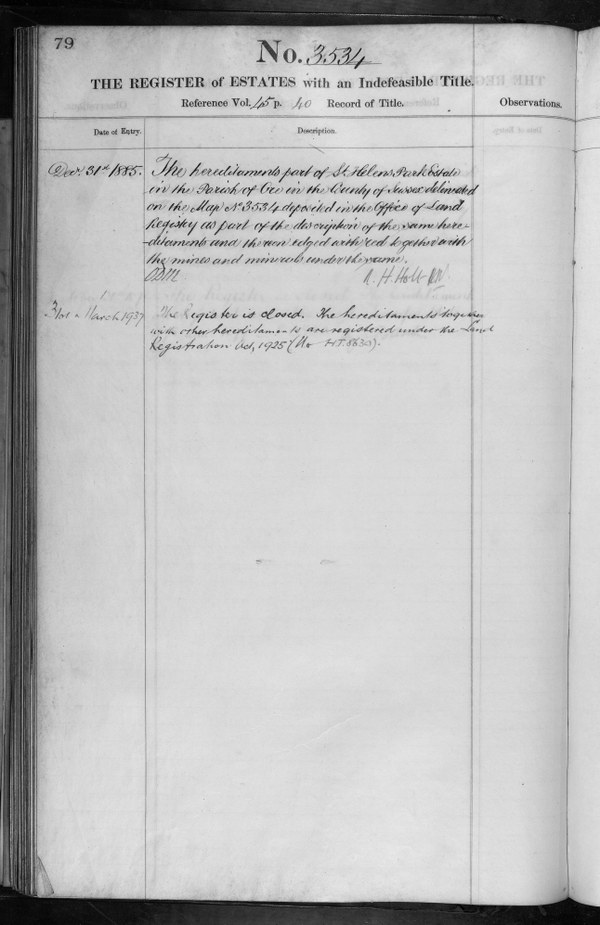 79
No. 3534
THE REGISTER of ESTATES with an Indefeasible Title.
Reference Vol. 45 p. 40 Record of Title.
Observations.
Date of Entry.
Description.
Decr. 31st 1885.
The hereditaments part of St Helens Park Estate
in the Parish of Ore in the County of Sussex delineated
on the Map No 3534 deposited in the Office of Land
Registry as part of the description of the same here-
-ditaments and thereon edged with red together with
the mines and minerals under the same.
R. H. Holt
31st March 1937
The Register is closed. The hereditaments together
with other hereditaments are registered under the Land
Registration Act, 1925 (No HT. 8630).